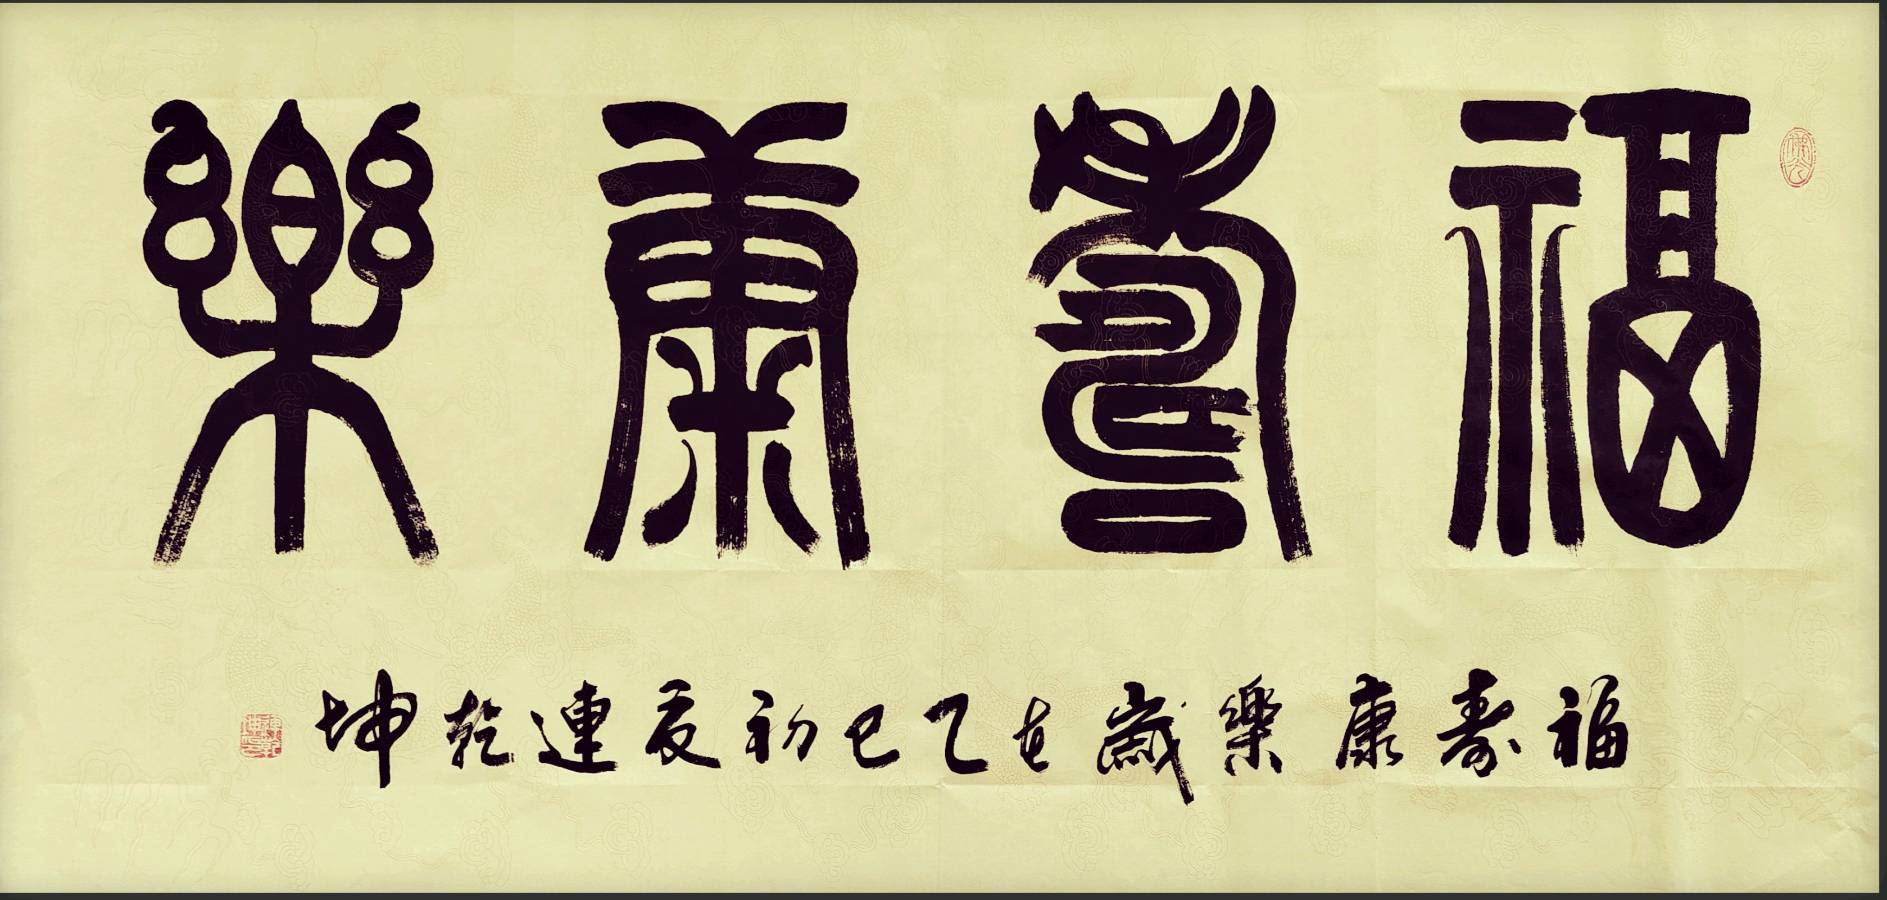 福壽康樂
福壽康樂歲在乙巳初夏連乾坤